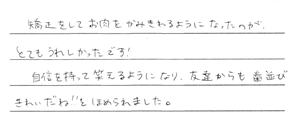 矯正をしてお肉をかみきれるようになったのが、
とてもうれしかったです!
自信を持って笑えるようになり、友達からも歯並び
きれいだね!!とほめられました。